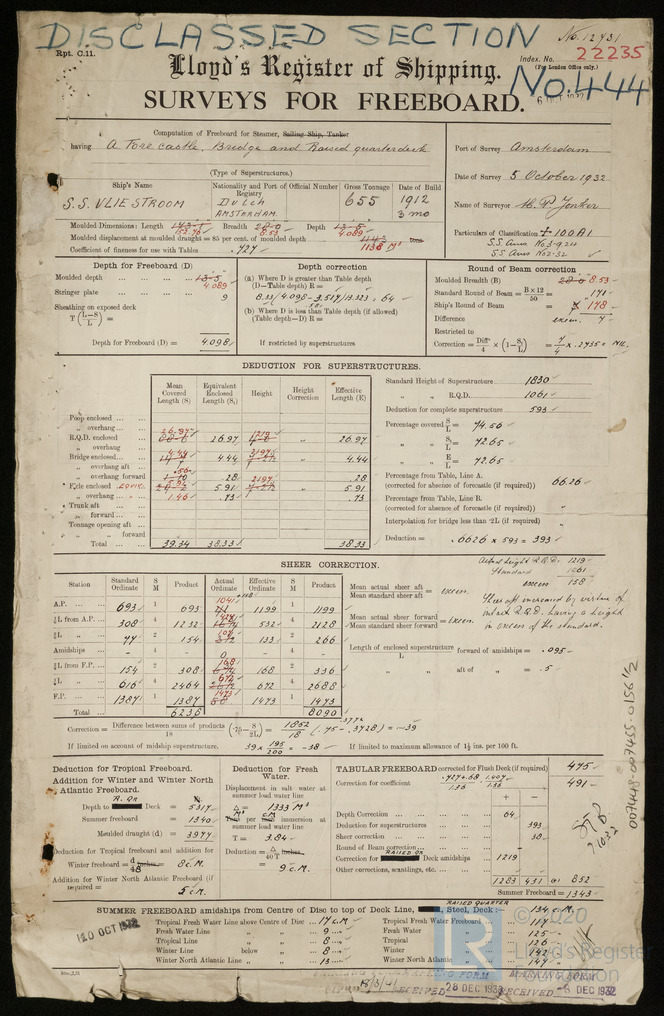 DISCLASSED SECTION
No. 12431
Rpt. C.11.
Index. No. 22235
(For London Office only.)
Lloyd's Register of Shipping.
No. 444
SURVEYS FOR FREEBOARD.
Computation of Freeboard for Steamer, Sailing Ship, Tanker
having A Forecastle, Bridge and Raised quarterdeck
(Type of Superstructures.)
Port of Survey Amsterdam
Date of Survey 5 October 1932
Name of Surveyor
Particulars of Classification + 100A1
Ship's Name
Nationality and Port of Registry
Official Number
Gross Tonnage
Date of Build
S.S. VLIESTROOM
Dutch
AMSTERDAM
655
1912
3 mo
Moulded Dimensions: Length Breadth 8.53 Depth 4.089
Moulded displacement at moulded draught = 85 per cent. of moulded depth 1138 Mˢ
Coefficient of fineness for use with Tables .727
Depth for Freeboard (D)
Moulded depth 4.089
Stringer plate 9
Sheathing on exposed deck
T (L-S/L) =
Depth for Freeboard (D) = 4.098
Depth correction
(a) Where D is greater than Table depth
(D—Table depth) R =
(b) Where D is less than Table depth (if allowed)
(Table depth—D) R =
If restricted by superstructures
Round of Beam correction
Moulded Breadth (B) 8.53
Standard Round of Beam = B × 12 / 50 = 171
Ship's Round of Beam = 178
Difference excess 7
Restricted to
Correction = Diffᶜᵉ/4 × (1 - S₁/L) = 7/4 × .2735 = NIL
DEDUCTION FOR SUPERSTRUCTURES.
Mean Covered Length (S)
Equivalent Enclosed Length (S₁)
Height
Height Correction
Effective Length (E)
Poop enclosed
„ overhang
R.Q.D. enclosed 26.97 26.97 1219 „ 26.97
„ overhang
Bridge enclosed 4.44 4.44 „ 4.44
„ overhang aft
„ overhang forward .28 2197 .28
F'cle enclosed 5.91 5.91
„ overhang 1.46 .73 .73
Trunk aft
„ forward
Tonnage opening aft
„ „ forward
Total 39.34 38.33 38.33
Standard Height of Superstructure 1830
„ „ R.Q.D. 1061
Deduction for complete superstructure 593
Percentage covered S/L = 74.56
„ „ S₁/L = 72.65
„ „ E/L = 72.65
Percentage from Table, Line A.
(corrected for absence of forecastle (if required)) 66.26
Percentage from Table, Line B.
(corrected for absence of forecastle (if required))
Interpolation for bridge less than ·2L (if required)
Deduction = .6626 × 593 = 393
SHEER CORRECTION.
Actual height R.Q.D. 1219
Standard 1061
excess 158
Sheer aft increased by virtue of
intact R.Q.D. having a height
in excess of the standard.
Station
Standard Ordinate
S M
Product
Actual Ordinate
Effective Ordinate
S M
Product
A.P. 693 1 693 1041 1199 1 1199
⅙L from A.P. 308 4 1232 532 4 2128
⅓L „ 77 2 154 133 2 266
Amidships - 4 - 0 - 4 -
⅓L from F.P. 154 2 308 168 168 2 336
⅙L „ 616 4 2464 672 672 4 2688
F.P. 1387 1 1387 1473 1473 1 1473
Total 6238 8090
Mean actual sheer aft / Mean standard sheer aft = excess.
Mean actual sheer forward / Mean standard sheer forward = excess.
Length of enclosed superstructure / L forward of amidships = .095
„ „ aft of „ = .5
Correction = Difference between sums of products / 18 (·75 - S/2L) = 1852/18 (.75 - .3728) = -39
If limited on account of midship superstructure. 39 × 195/200 = -38
If limited to maximum allowance of 1½ ins. per 100 ft.
Deduction for Tropical Freeboard.
Addition for Winter and Winter North
Atlantic Freeboard.
Depth to Deck = 5317
Summer freeboard = 1340
Moulded draught (d) = 3977
Deduction for Tropical freeboard and addition for
Winter freeboard = d/48 = 8 c.M.
Addition for Winter North Atlantic Freeboard (if
required) = 5 c.M.
Deduction for Fresh
Water.
Displacement in salt water at
summer load water line
Δ = 1333 Mˢ
immersion at
summer load water line
T = 3.84
Deduction = Δ/40T
= 9 c.M.
TABULAR FREEBOARD corrected for Flush Deck (if required) 475
Correction for coefficient 491
+ -
Depth Correction 64
Deduction for superstructures 393
Sheer correction 38
Round of Beam correction
Correction for RAISED QR Deck amidships 1219
Other corrections, scantlings, etc.
1283 431 852
Summer Freeboard = 1343
SUMMER FREEBOARD amidships from Centre of Disc to top of Deck Line, RAISED QUARTER Steel, Deck:— 134 c.M.
Tropical Fresh Water Line above Centre of Disc 17 c.M.
Fresh Water Line „ „ 9
Tropical Line „ „ 8
Winter Line below „ 8
Winter North Atlantic Line „ „ 13
Tropical Fresh Water Freeboard 117
Fresh Water „ 125
Tropical „ 126
Winter „ 142
Winter North Atlantic „ 147
10 OCT 1932
RECEIVED 28 DEC 1932
MARKING FORM
RECEIVED -8 DEC 1932
007448-007455-0156 1/2
© 2020
LR
Lloyd's Register
Foundation